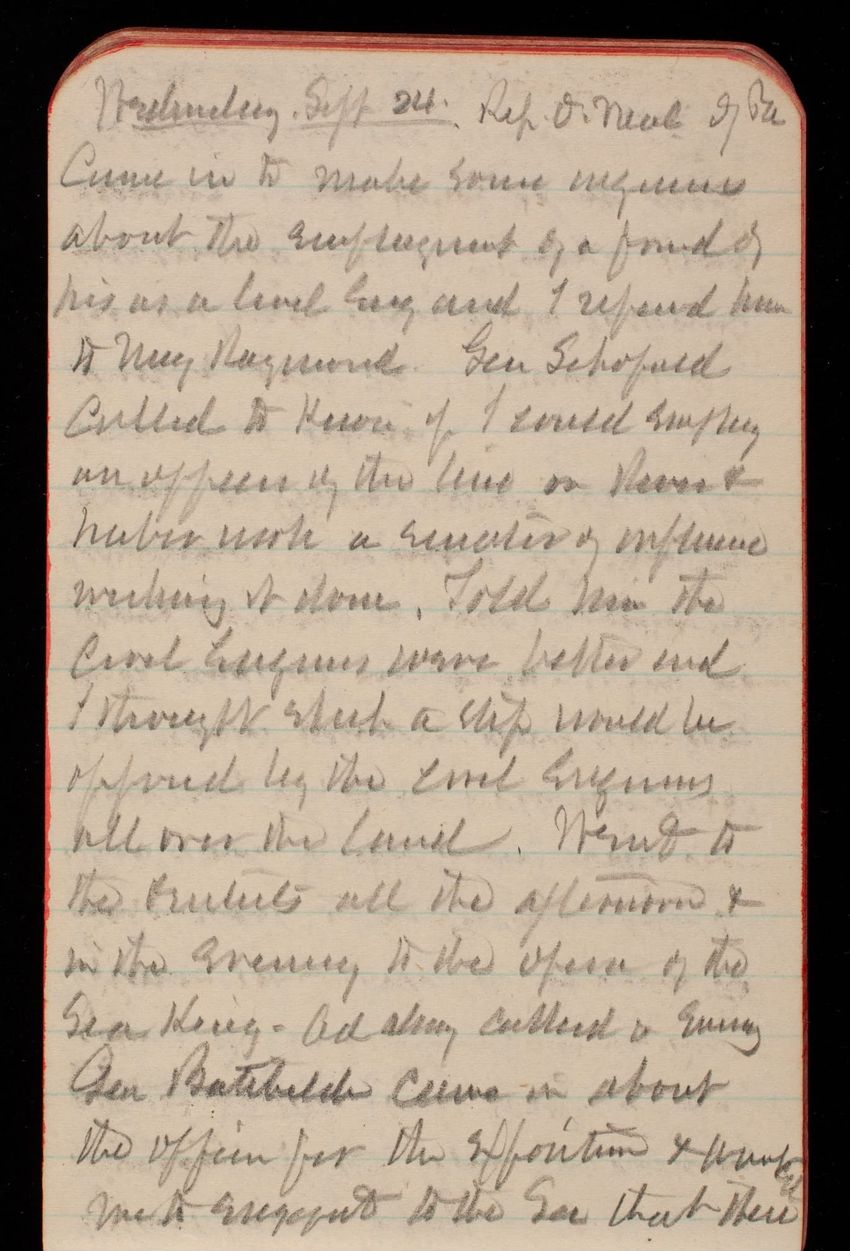 Wednesday. Sept 24. Rep O. Neal of Pa
Came in to make some inquiries
about the employment of a friend of
his as a Civil Eng and I referred him
to Maj Raymond. Gen Schofield
Called to know if I could employ
an officer of the line on River &
harbor work a senator of influence
wishing it done. Told him the
Civil Engineers were better and
I thought such a step would be
opposed by the civil Engineers
all over the land. Went to
the all the afternoon &
in the Evening to the opera of the
Sea King - called
Gen came in about
the officer for the Exposition &
me to suggest to the Sec that there